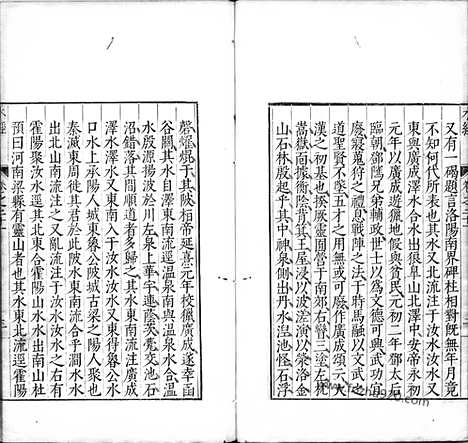 又有一碣題言洛陽南界碑柱相對既無年月竟
不知何代所表也其水又北流注于汝水汝水又
東與廣成澤水合水出狼皐山北澤中安帝永初
元年以廣成遊獵地假與貧民元初二年鄧太后
臨朝鄧騭兄弟輔政世士以爲文德可興武功宜
廢寢蒐狩之禮息戰陣之法于時馬融以文武之
道聖賢不墜五才之用無或可廢作廣成頌云大
漢之初基也揆厥靈囿營于南郊右矕三塗左枕
嵩嶽面據衡陰背箕王屋浸以波溠演以滎洛金
山石林殷起乎其中神泉側出丹水涅池怪石浮
磬燿焜于其陂桓帝延熹元年校獵廣成遂幸函
谷關其水自澤東南流逕溫泉南與溫泉水合溫
水殷源揚波於川左泉上華宇連蔭茨甍交池石
沼錯落其間順道者多歸之其水東南流注廣成
澤水澤水又東南入于汝水汝水又東得魯公水
口水上承陽人城東魯公陂城古梁之陽人聚也
秦滅東周徙其君於此陂水東南流合于澗水水
出北山南流注之又亂流注于汝水汝水之右有
霍陽聚汝水逕其北東合霍陽山水水出南山杜
預曰河南梁縣有靈山者也其水東北流逕霍陽